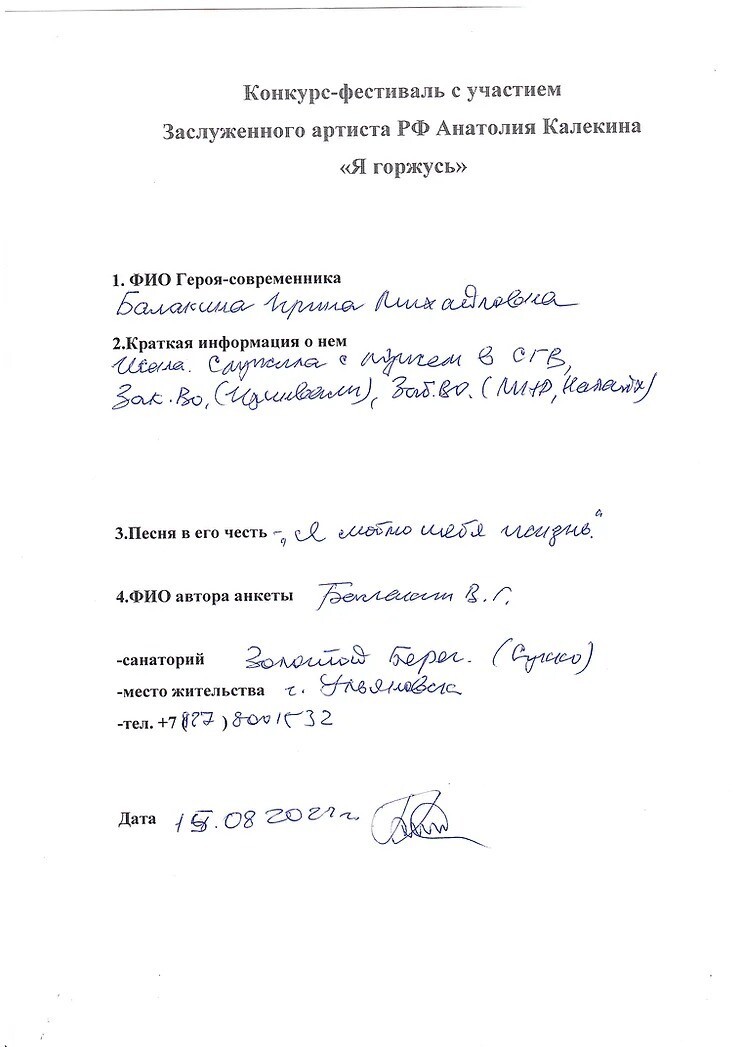 Конкурс-фестиваль с участием
Заслуженного артиста РФ Анатолия Калекина
«Я горжусь»
1. ФИО Героя-современника
Балакина Ирина Михайловна
2.Краткая информация о нем
Жена. Служила с мужем в СГВ,
Зак.Во, Заб.ВО. (МНР,
3.Песня в его честь - „Я люблю тебя жизнь."
4.ФИО автора анкеты Балакин В.Г.
-санаторий Золотой Берег. (Сукко)
-место жительства г. Ульяновск
-тел. +7 ( ) 8001532
Дата 15.08 2021 г.